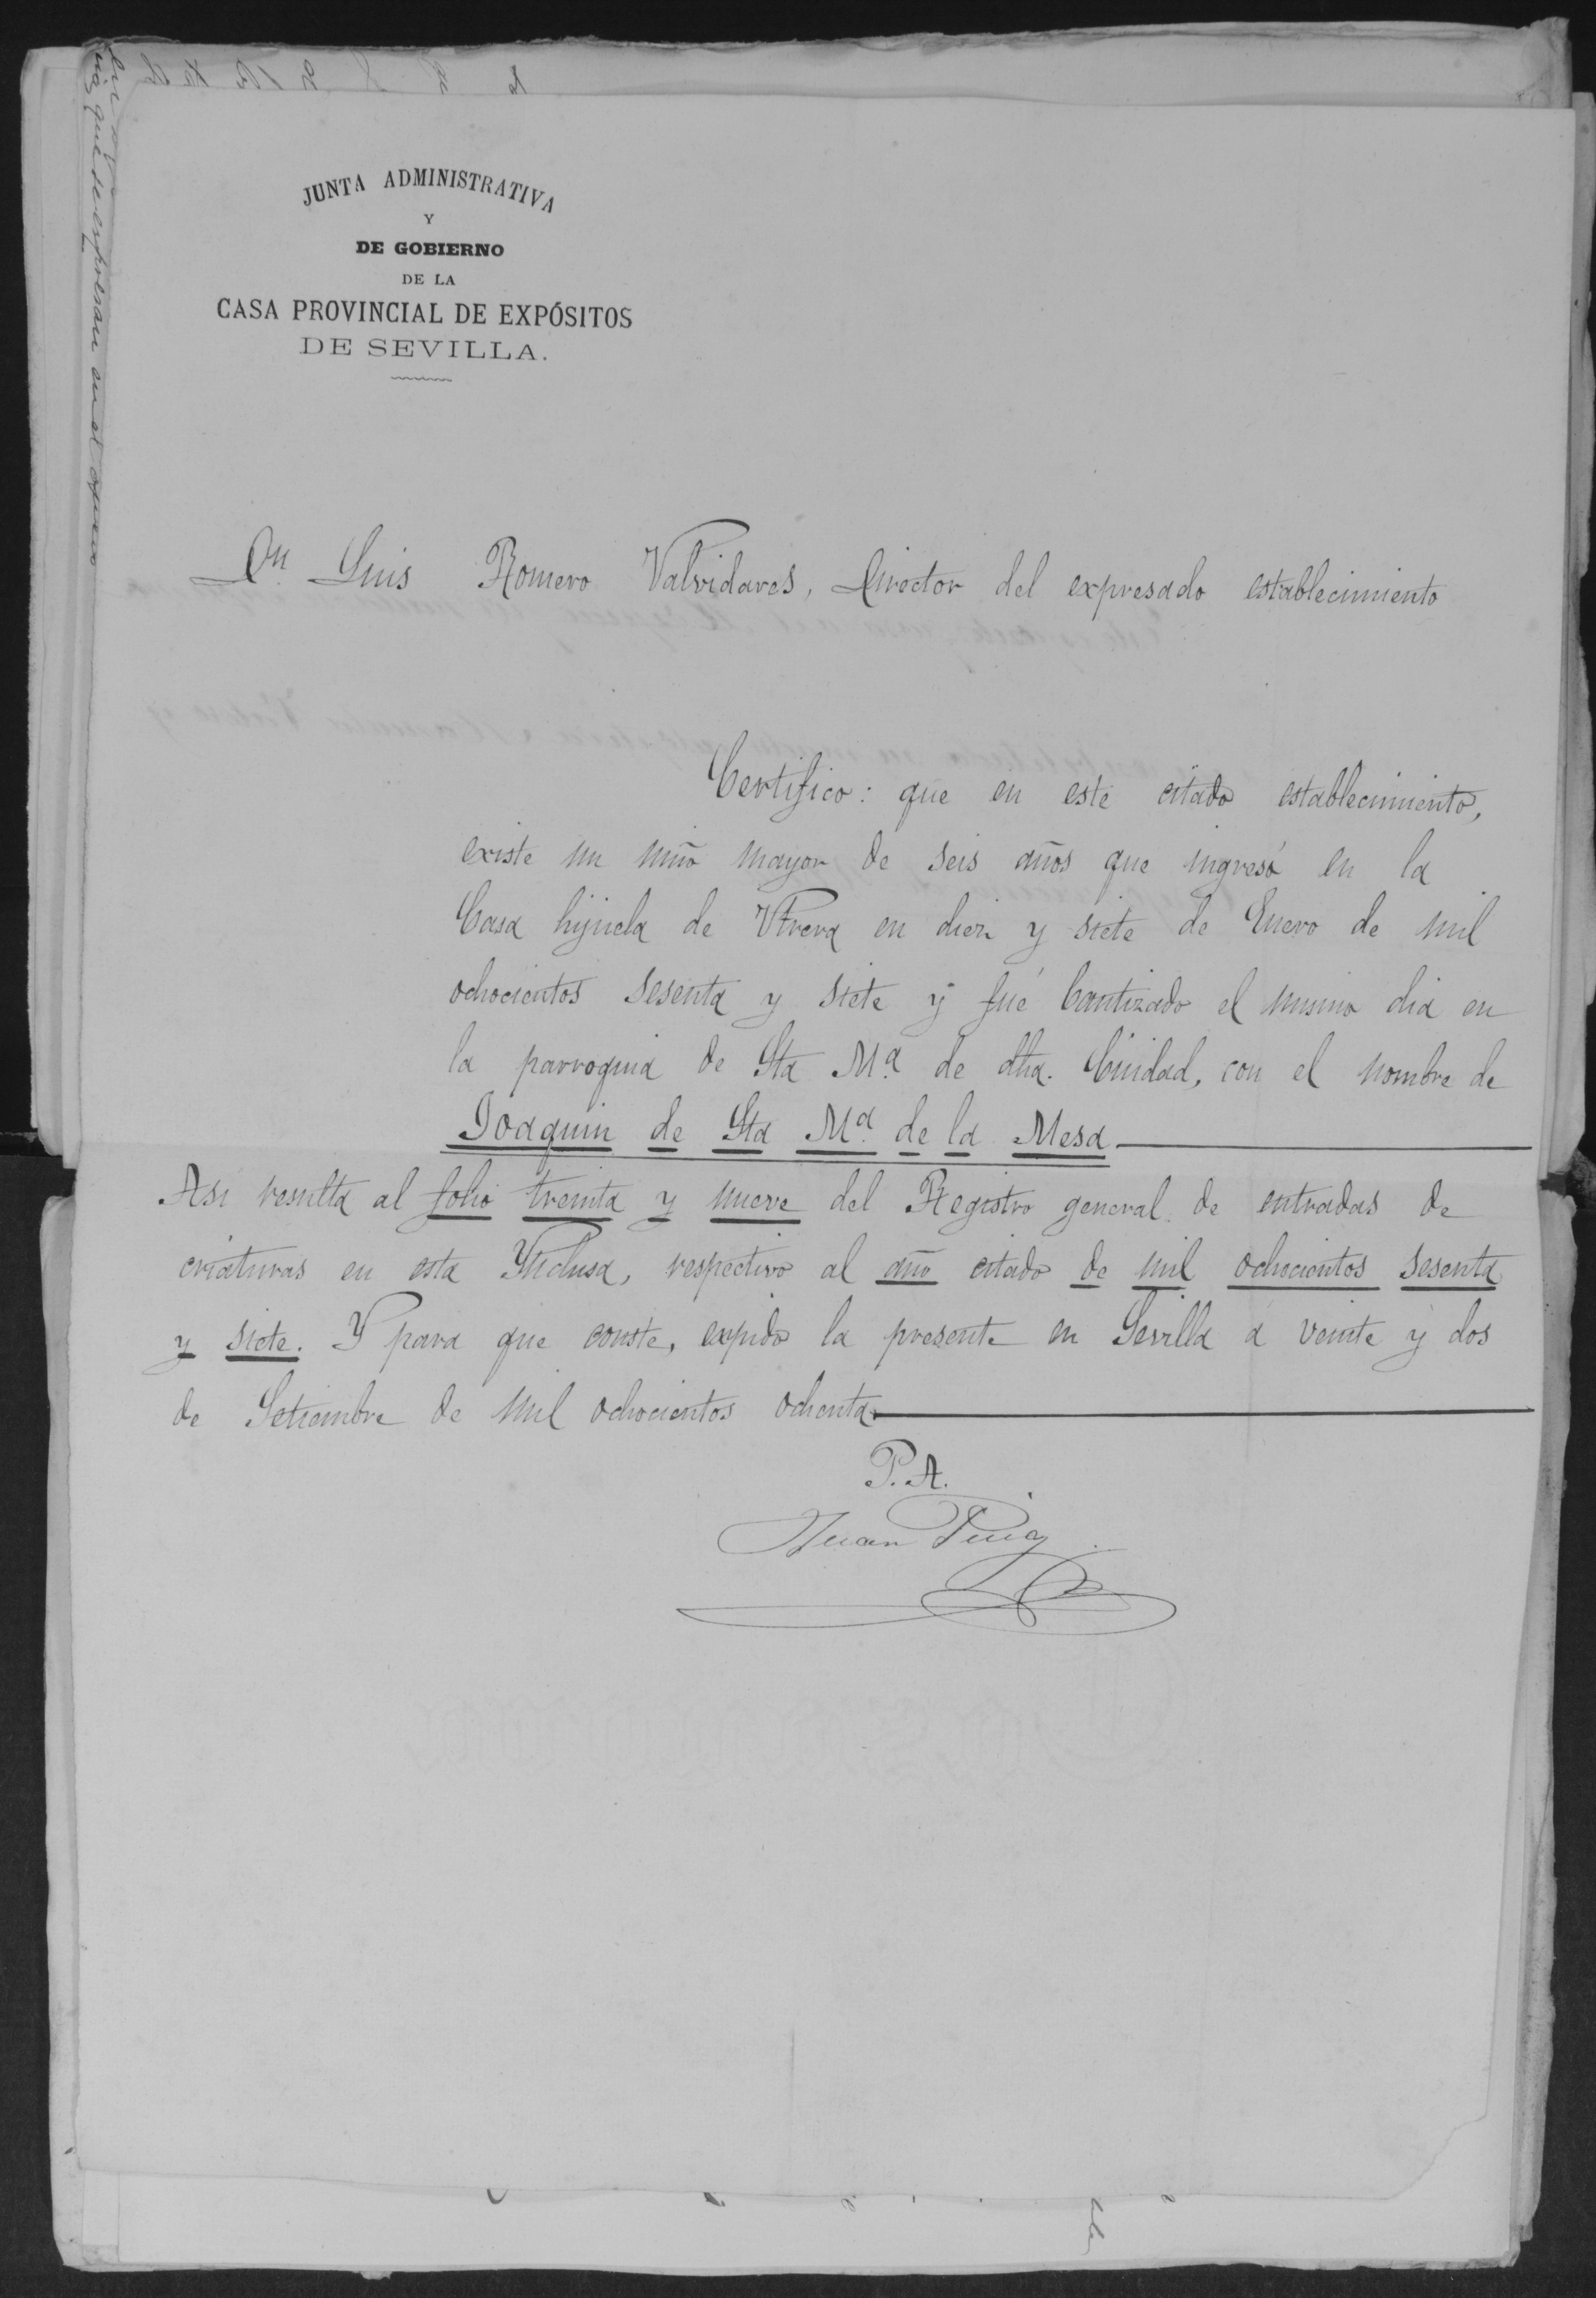 JUNTA ADMINISTRATIVA
Y
DE GOBIERNO
DE LA
CASA PROVINCIAL DE EXPÓSITOS
DE SEVILLA.
Dn. Luis Romero Valvidares, Director del expresado establecimiento
Certifico: que en este citado establecimiento,
existe un niño mayor de seis años que ingresó en la
Casa hijuela de Utrera en diez y siete de Enero de mil
ochocientos sesenta y siete y fué bautizado el mismo dia en
la parroquia de Sta Ma. de dha. Ciudad, con el nombre de
Joaquin de Sta Ma. de la Mesa
Asi resulta al folio treinta y nueve del Registro general de entradas de
criaturas en esta Ynclusa, respectivo al año citado de mil ochocientos sesenta
y siete. Y para que conste, expido la presente en Sevilla á veinte y dos
de Setiembre de mil ochocientos ochenta
P.A.
Juan Puig
que se espresan en el